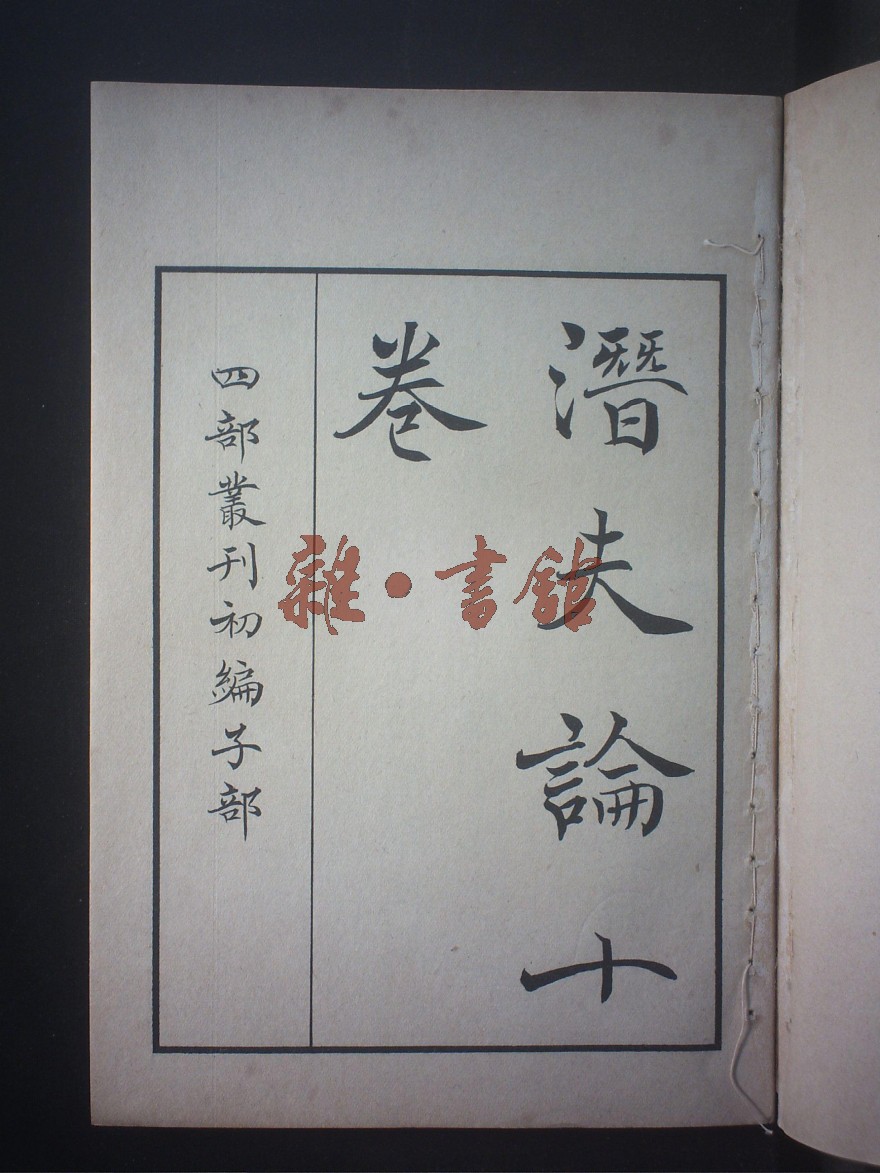 潛夫論十
卷
四部叢刊初編子部
雜·書館